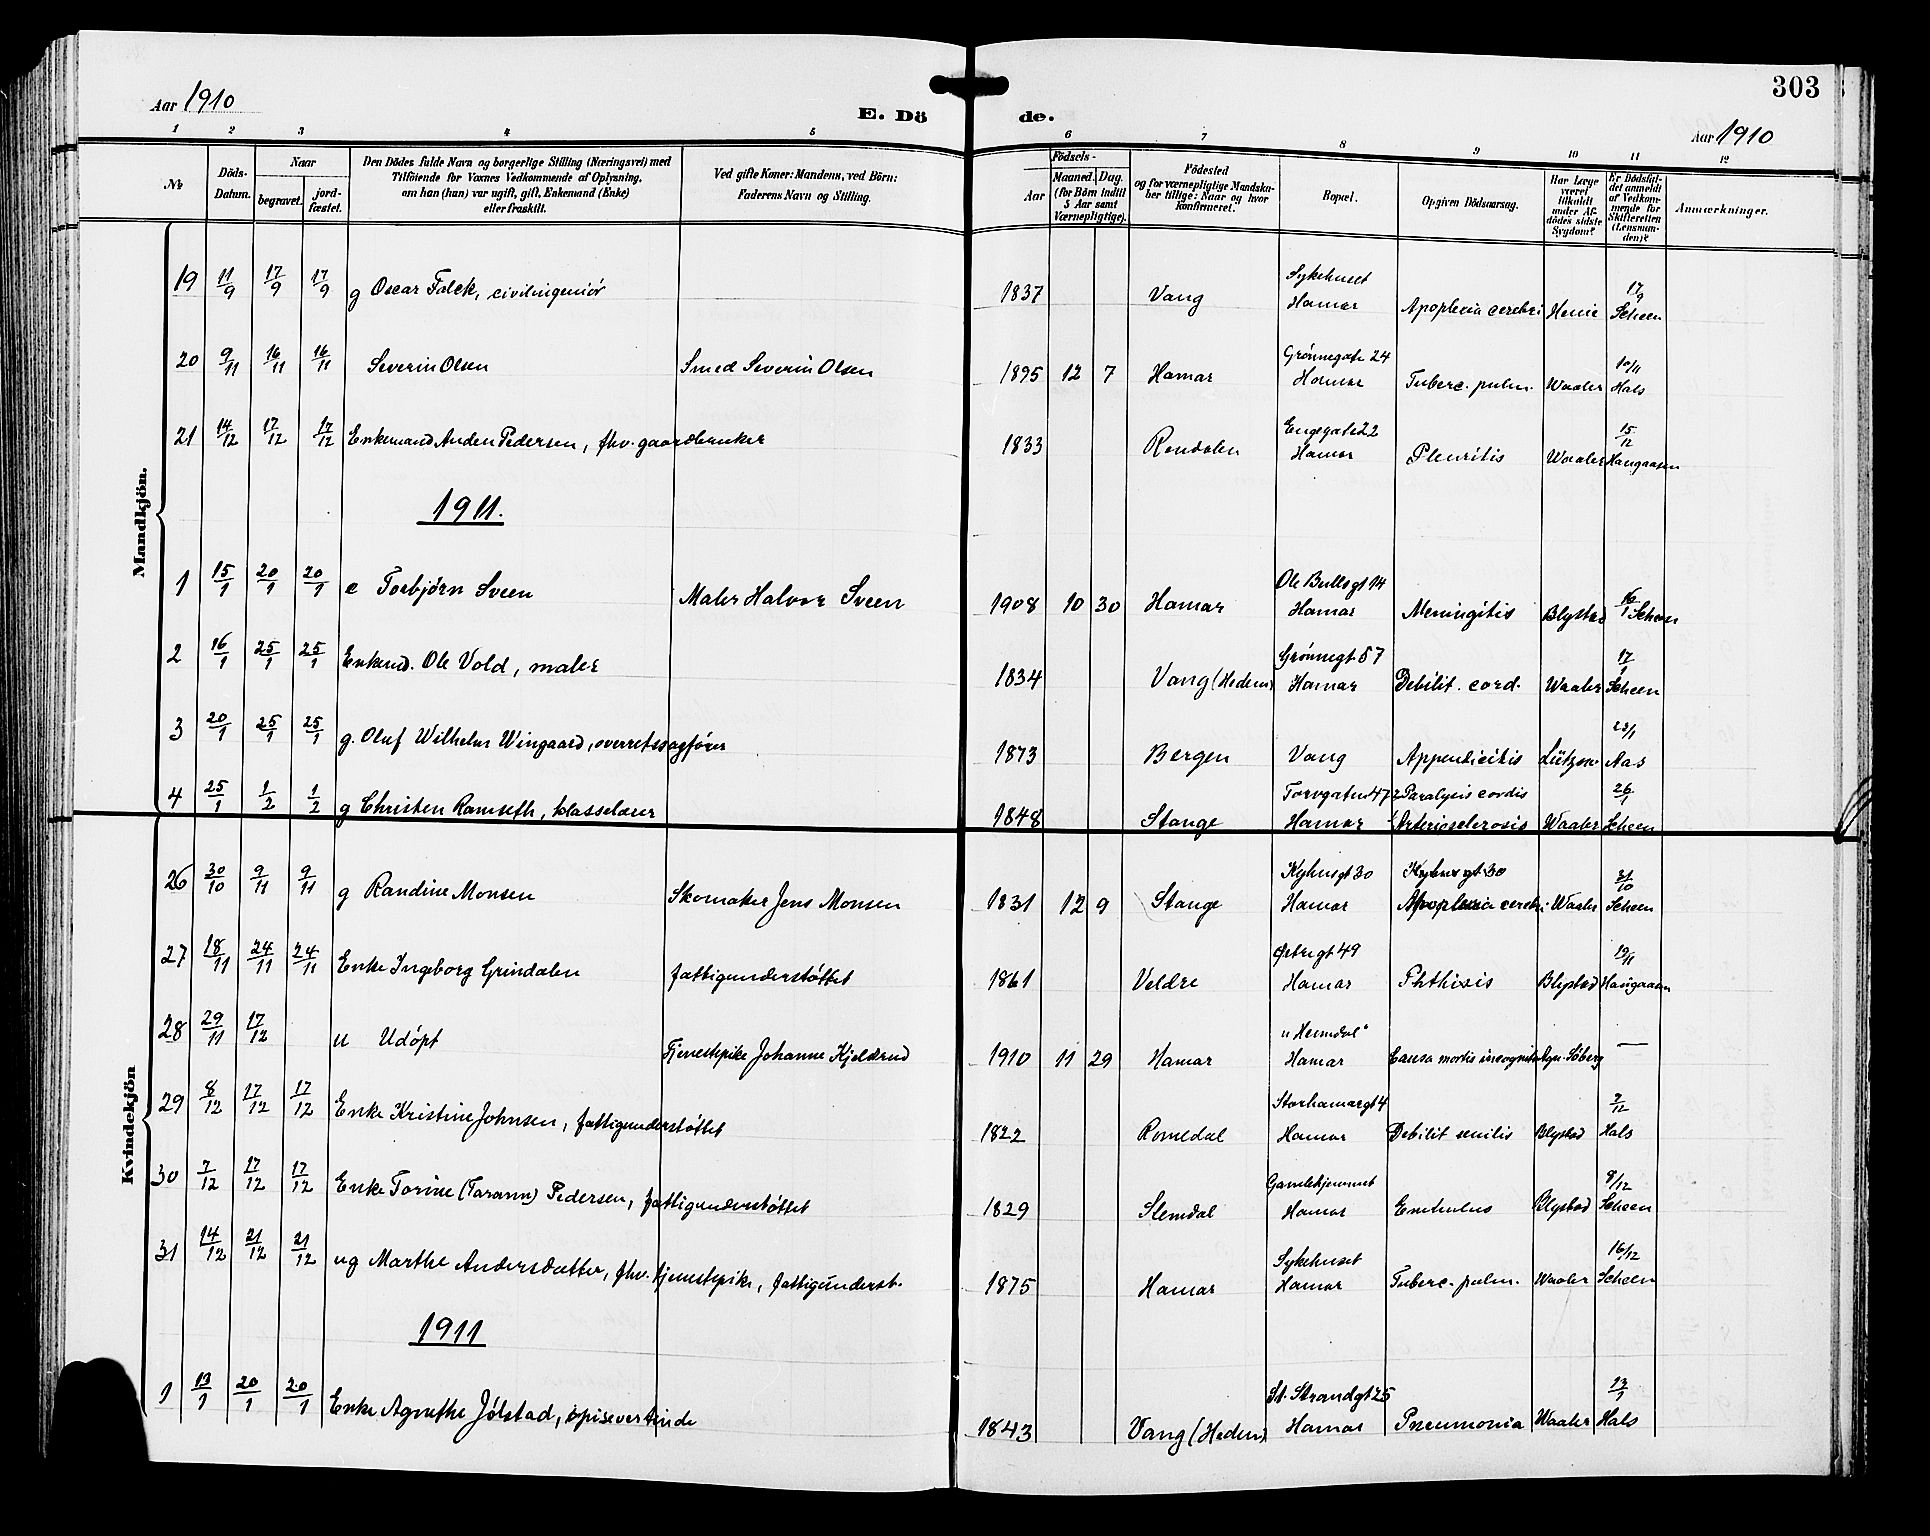 303
Aar 1910
E. Dö de.
Aar 1910
1 2 3 4 5 6 7 8 9 10 11 12
№
Döds-Datum.
Naar
begravet.
jord-fæstet.
Den Dödes fulde Navn og borgerlige Stilling (Næringsvei) med
Tilföiende for Voxnes Vedkommende af Oplysning,
om han (hun) var ugift, gift, Enkemand (Enke)
eller fraskilt.
Ved gifte Koner: Mandens, ved Börn:
Faderens Navn og Stilling.
Födsels-
Aar
Maaned. Dag.
(for Börn indtil
5 Aar samt
Værnepligtige).
Födested
og for værnepligtige Mandska-
ber tillige: Naar og hvor
konfirmeret.
Bopæl.
Opgiven Dödsaarsag.
Har Læge
været
tilkaldt
under Af-
dödes sidste
Sygdom?
Er Dödsfal-
det anmeldt
af Vedkom-
mende for
Skifteretten
(Lensman-
den)?
Anmærkninger.
Mandkjön.
19 11/9 17/9 17/9 g Oscar Falck, civilingeniør 1837 Vang Sykehuset Hamar Apoplexia cerebri Henie 17/9 Scheen
20 9/11 16/11 16/11 Severin Olsen Smed Severin Olsen 1895 12 7 Hamar Grønnegate 24 Hamar Tuberc. pulm. Waaler 10/11 Hals
21 14/12 17/12 17/12 Enkemand Anders Pedersen, fhv. gaardbruker 1833 Rendalen Engegate 22 Hamar Pleuritis Waaler 15/12 Haugaasen
1911.
1 15/1 20/1 20/1 e Torbjørn Sveen Maler Halvor Sveen 1908 10 30 Hamar Ole Bullsgt 14 Hamar Meningitis Blystad 16/1 Scheen
2 16/1 25/1 25/1 Enkemd. Ole Vold, maler 1834 Vang (Hedem) Grønnegt 57 Hamar Debilit. cord. Waaler 17/1 Scheen
3 20/1 25/1 25/1 g. Oluf Wilhelm Wingaard, overretssagfører 1873 Bergen Vang Appendicitis Lützow 23/1 Aas
4 25/1 1/2 1/2 g Christen Ramseth, klasselærer 1848 Stange Torvgaten 47 Hamar Paralysis cordis Arteriosclerosis Waaler 26/1 Scheen
Kvindekjön
26 30/10 9/11 9/11 g Randine Monsen Skomaker Jens Monsen 1831 12 9 Stange Kyhusgt 30 Hamar Kyhusgt 30 Apoplexia cerebri Waaler 31/10 Scheen
27 18/11 24/11 24/11 Enke Ingeborg Grindalen fattigunderstøttet 1861 Veldre Østregt 49 Hamar Phthisis Blystad 19/11 Haugaasen
28 29/11 17/12 u Udøpt Tjenestepike Johanne Kjeldsrud 1910 11 29 Hamar "Heimdal" Hamar Causa mortis incognita Søberg —
29 8/12 17/12 17/12 Enke Kristine Johnsen, fattigunderstøttet 1822 Romedal Storhamargt 4 Hamar Debilit senilis Blystad 9/12 Hals
30 7/12 17/12 17/12 Enke Torine (Tarann) Pedersen, fattigunderstøttet 1829 Slemdal Gamlehjemmet Hamar Embolus Blystad 8/12 Scheen
31 14/12 21/12 21/12 ug Marthe Andersdatter, fhv. tjenestepike, fattigunderst. 1875 Hamar Sykehuset Hamar Tuberc. pulm. Waaler 16/12 Scheen
1911
1 13/1 20/1 20/1 Enke Agnethe Jølstad, spisevertinde 1843 Vang (Hedem) St. Strandgt 25 Hamar Pneumonia Waaler 13/1 Hals